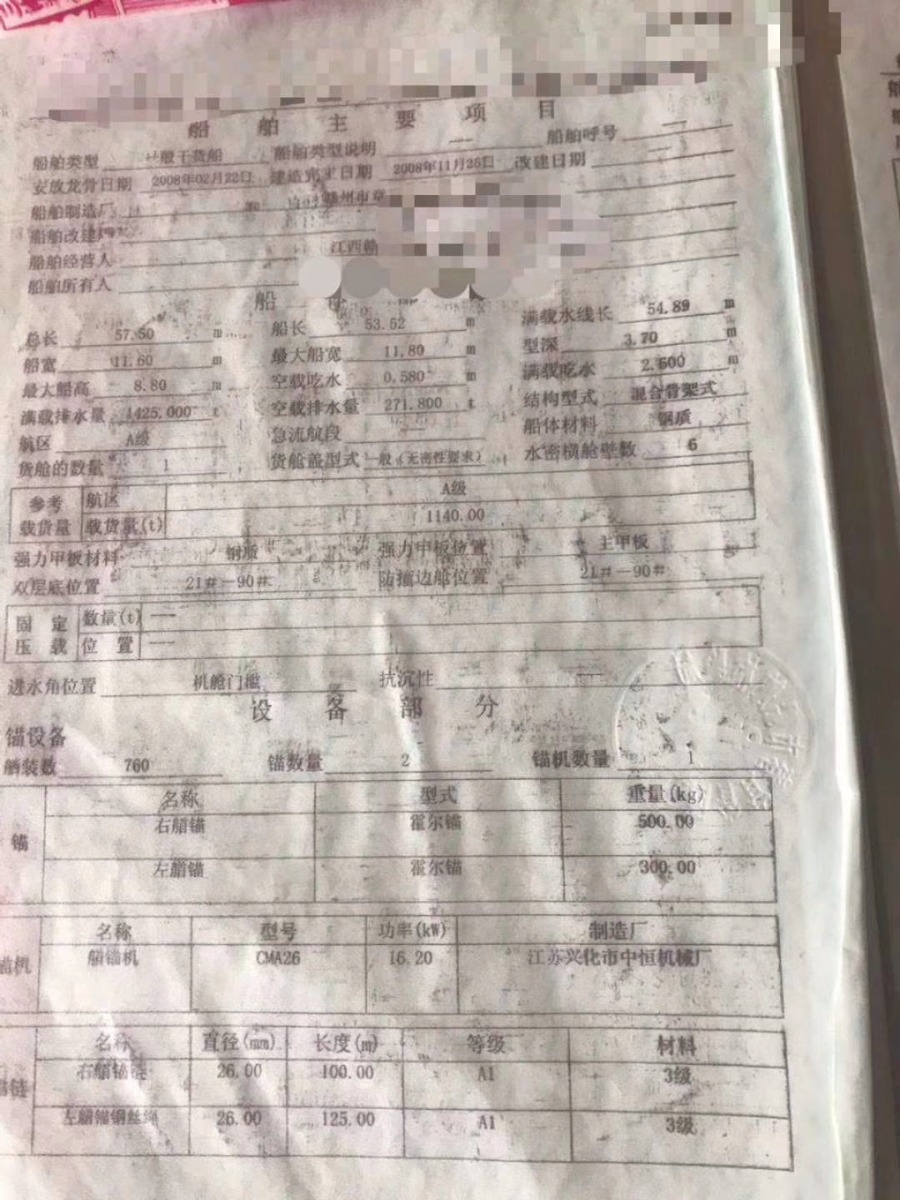 船舶主要项目
船舶类型 一般干货船 船舶类型说明 —— 船舶呼号 ——
安放龙骨日期 2008年02月22日 建造完工日期 2008年11月25日 改建日期
船舶制造厂 赣州市章
船舶改建厂
船舶经营人 江西赣
船舶所有人
船 部
总长 57.50 m 船长 53.52 m 满载水线长 54.89 m
船宽 11.60 m 最大船宽 11.80 m 型深 3.70 m
最大船高 8.80 m 空载吃水 0.580 m 满载吃水 2.600 m
满载排水量 1425.000 t 空载排水量 271.800 t 结构型式 混合骨架式
航区 A级 急流航段 —— 船体材料 钢质
货舱的数量 1 货舱盖型式 一般(无密性要求) 水密横舱壁数 6
参考载货量 航区 A级
载货量(t) 1140.00
强力甲板材料 钢质 强力甲板位置 主甲板
双层底位置 21#－90# 防撞边舱位置 21#－90#
固定压载 数量(t) ——
位置 ——
进水角位置 机舱门槛 抗沉性 ——
设备部分
锚设备
舾装数 760 锚数量 2 锚机数量 1
锚 名称 型式 重量(kg)
右艏锚 霍尔锚 500.00
左艏锚 霍尔锚 300.00
锚机 名称 型号 功率(kW) 制造厂
艏锚机 CMA26 16.20 江苏兴化市中恒机械厂
锚链 名称 直径(mm) 长度(m) 等级 材料
右艏锚链 26.00 100.00 A1 3级
左艏锚钢丝绳 26.00 125.00 A1 3级